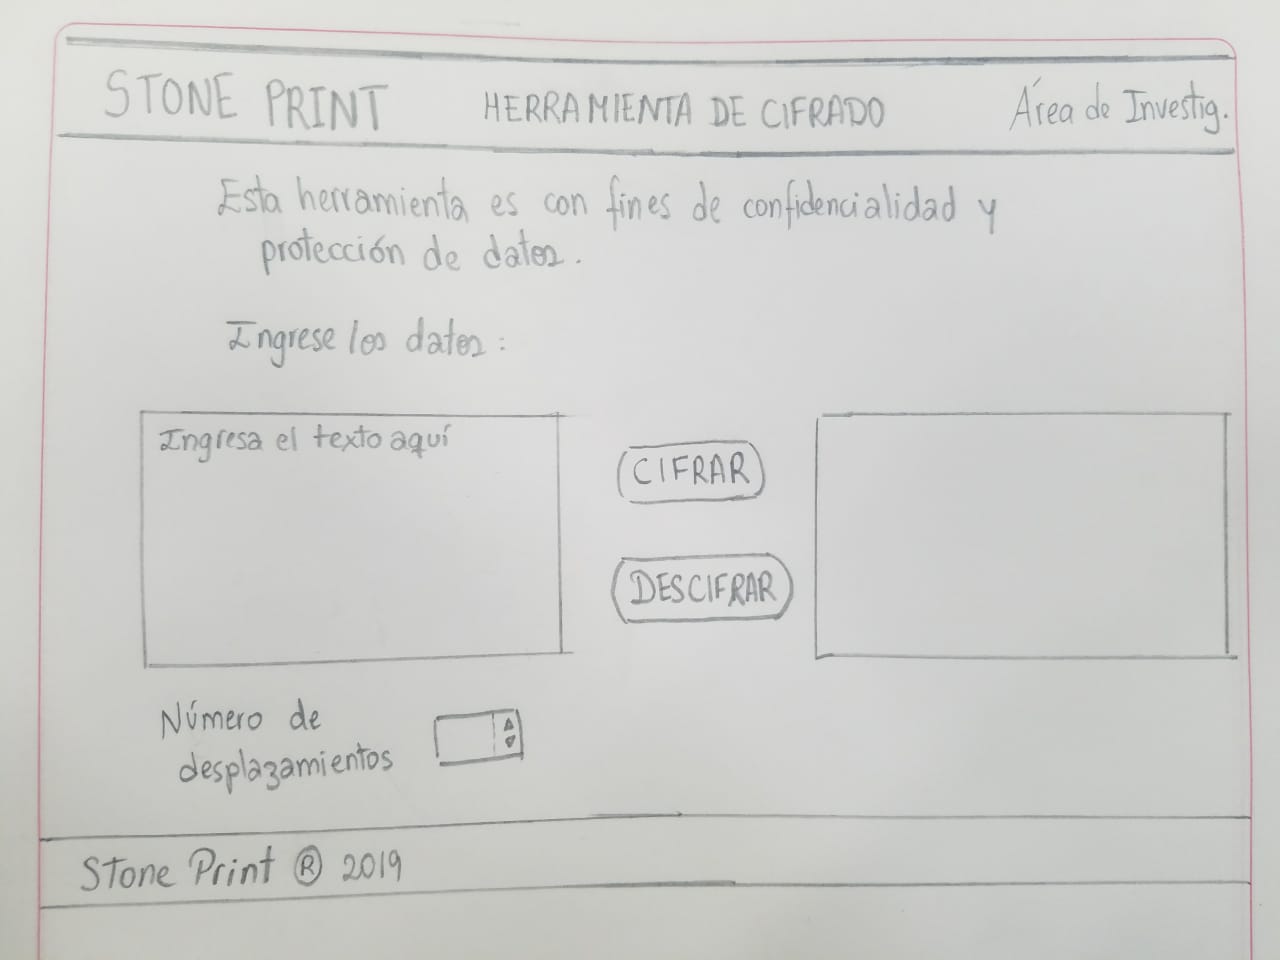 STONE PRINT HERRAMIENTA DE CIFRADO Área de Investig.
Esta herramienta es con fines de confidencialidad y
protección de datos.
Ingrese los datos:
Ingresa el texto aquí
CIFRAR
DESCIFRAR
Número de
desplazamientos
Stone Print ® 2019